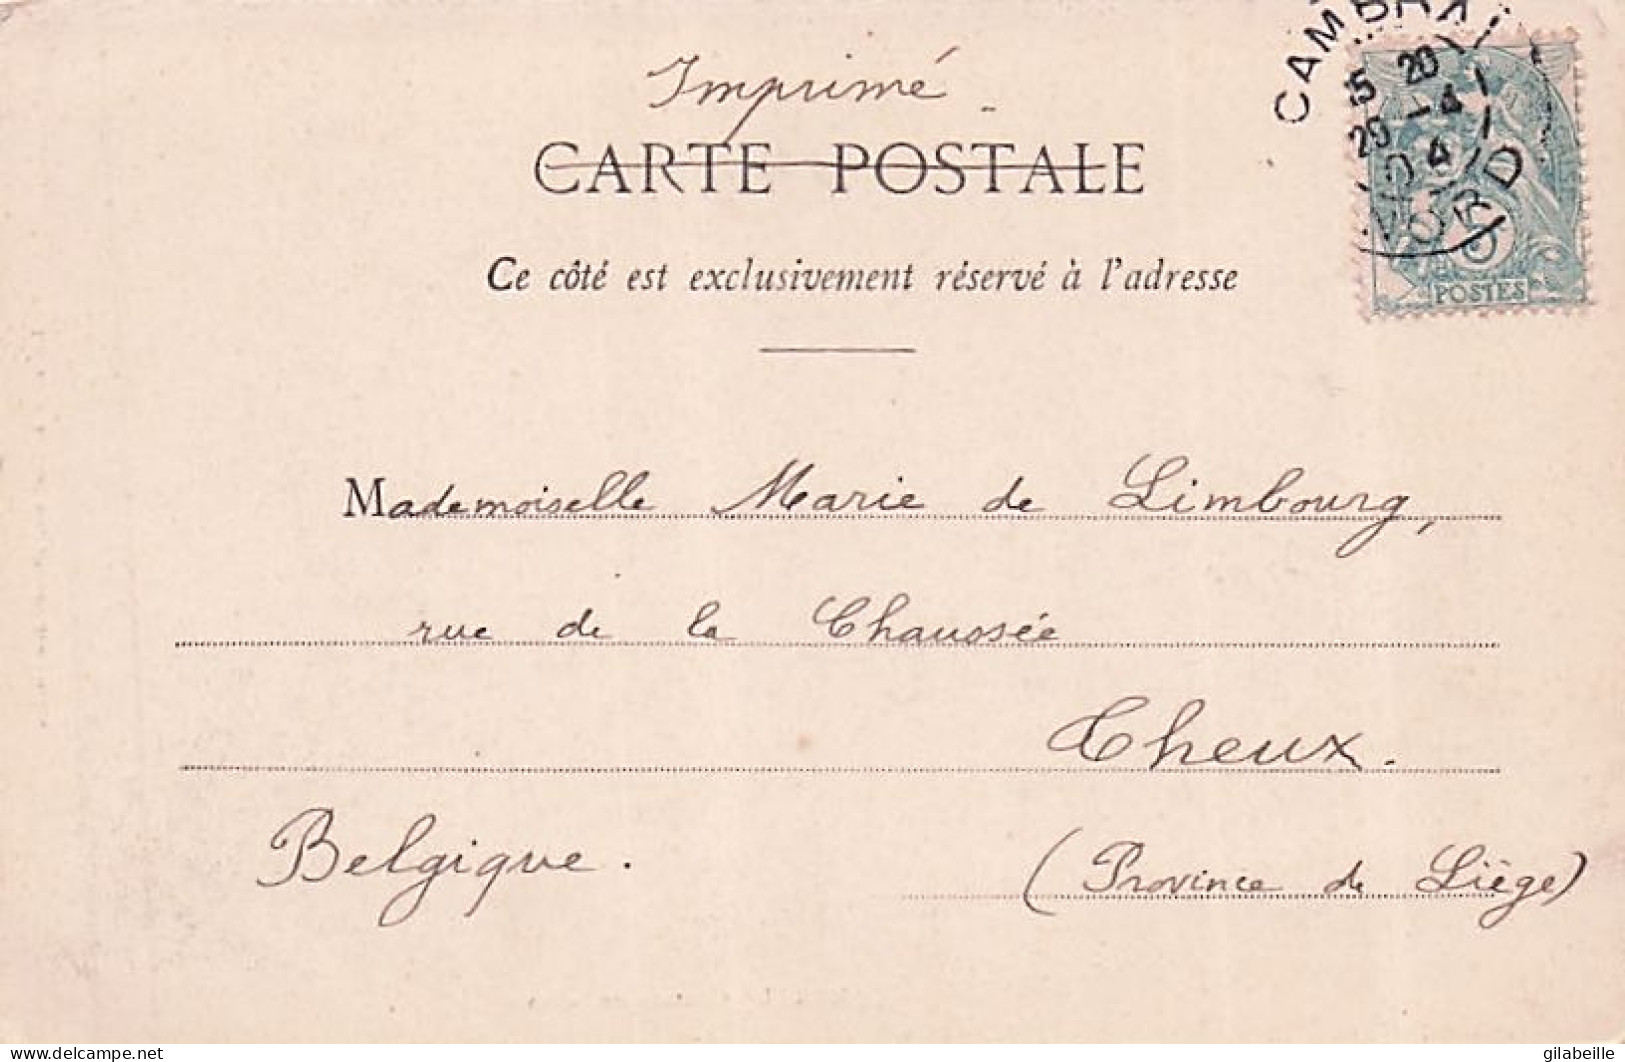 Imprimé
CARTE POSTALE
Ce côté est exclusivement réservé à l'adresse
CAMBRAI
15 20
20 -4
04
NORD
5
POSTES
Mademoiselle Marie de Limbourg,
rue de la Chaussée
Theux.
Belgique.
(Province de Liège)
https://www.delcampe.net
gilabeille